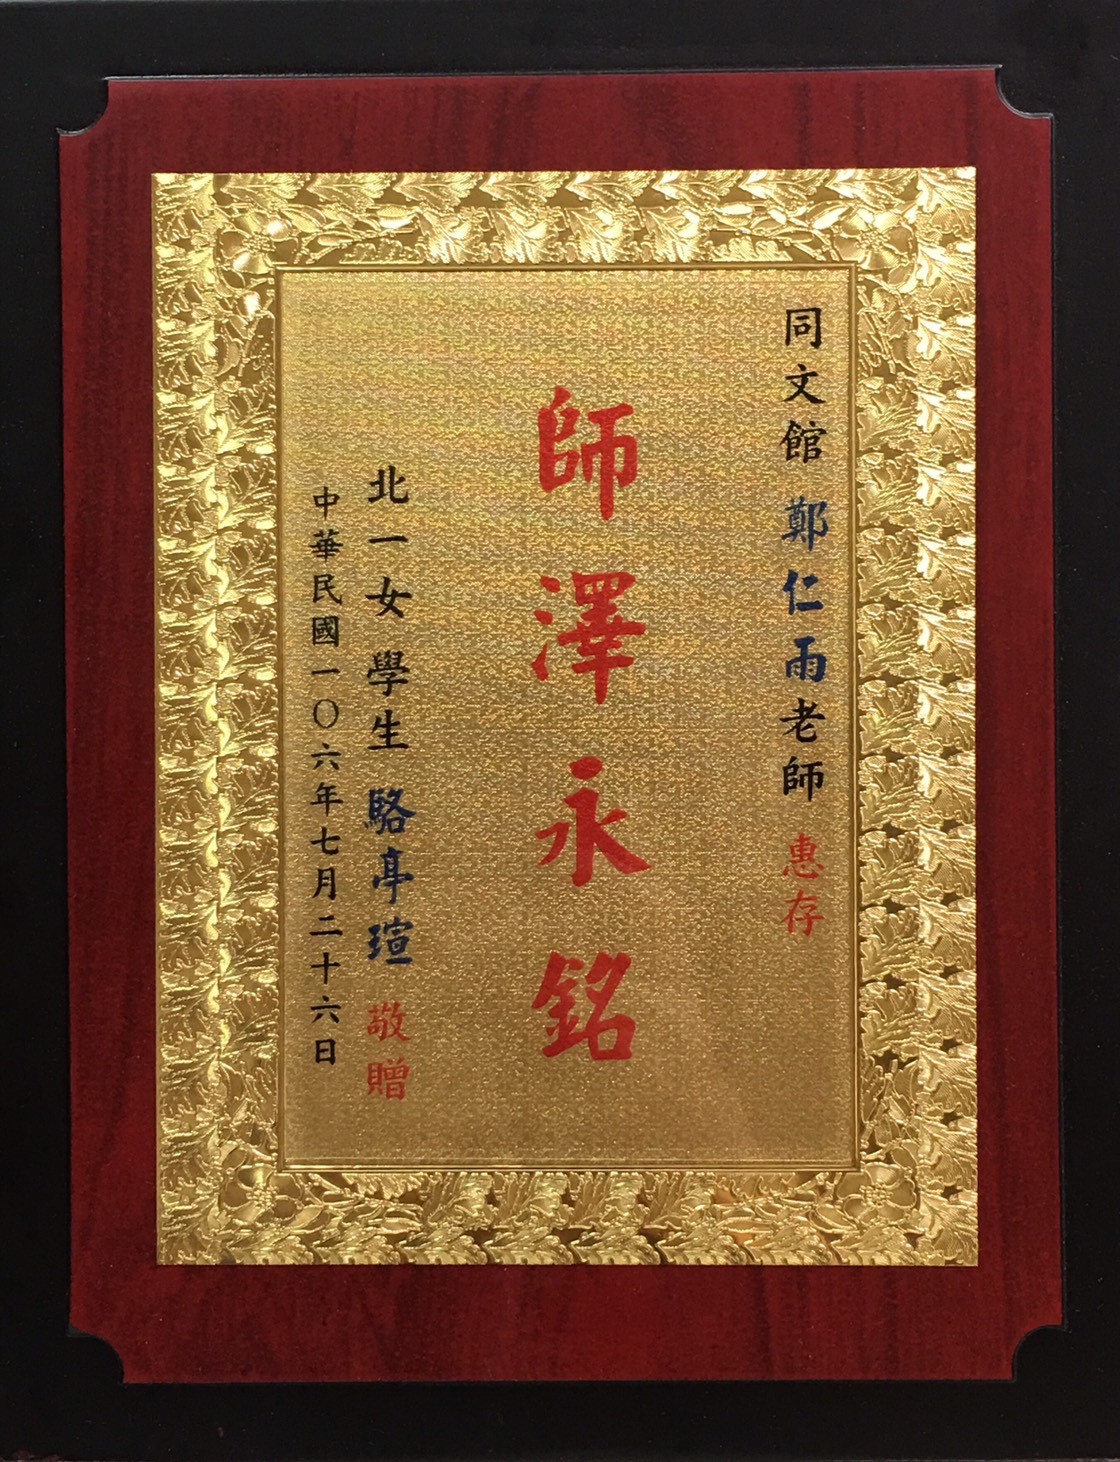 同文館 鄭仁雨老師 惠存
師澤永銘
北一女 學生 駱亭瑄 敬贈
中華民國一〇六年七月二十六日